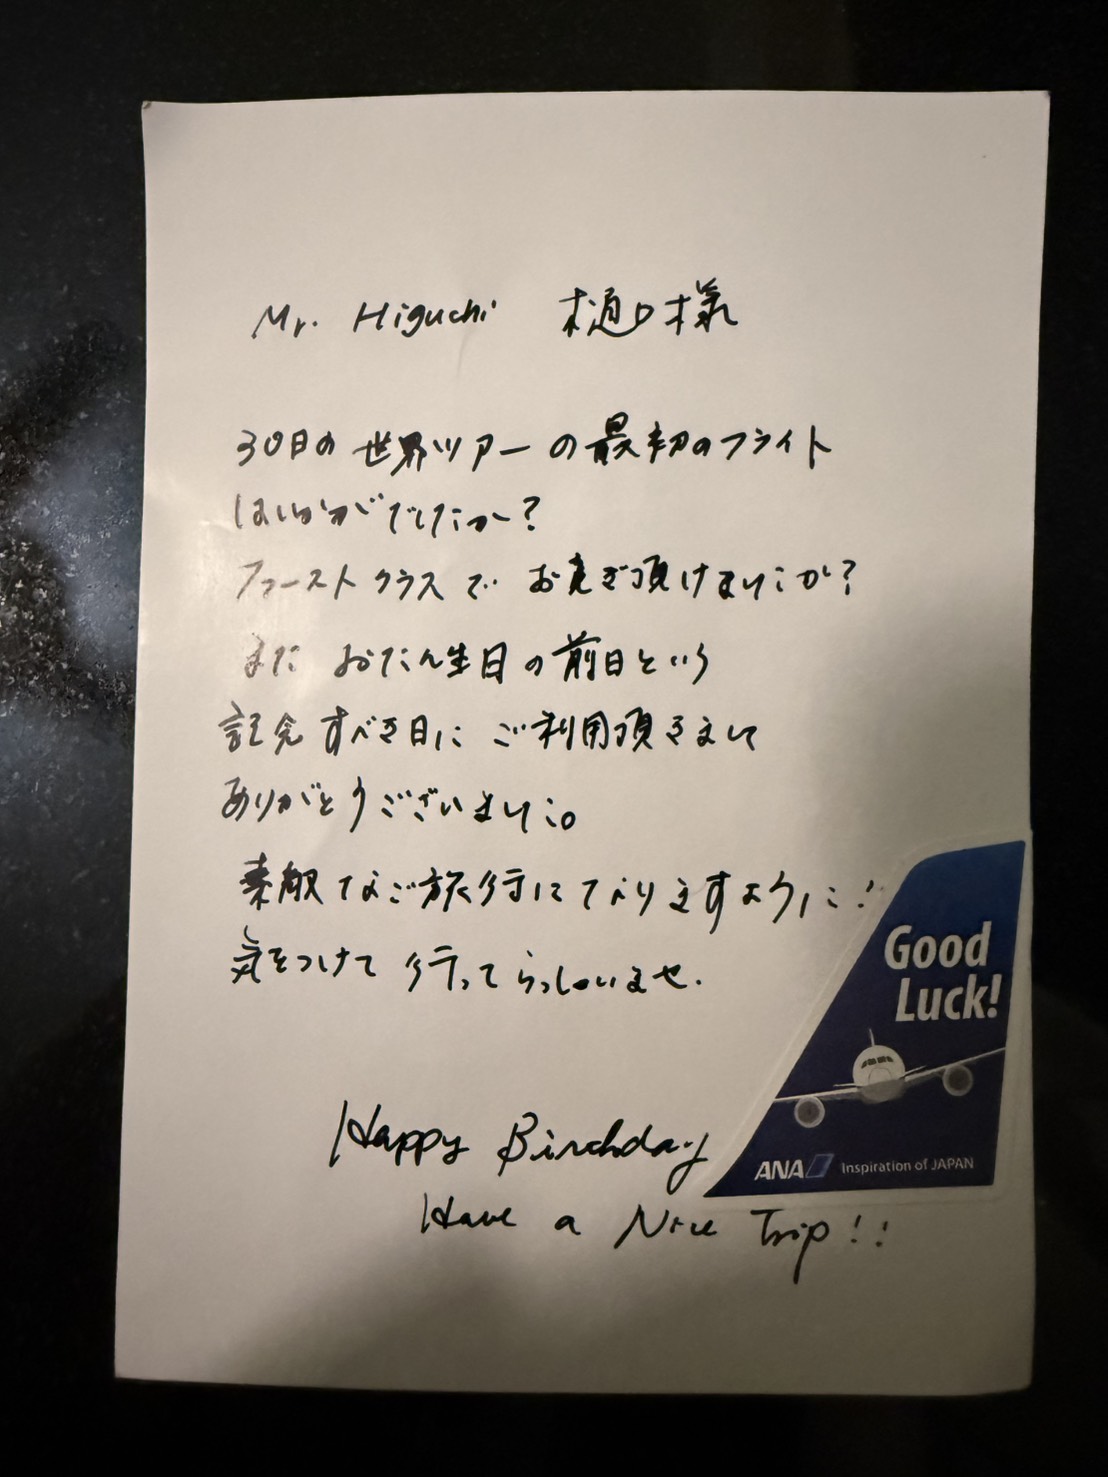 Mr. Higuchi 樋口様
30日の世界ツアーの最初のフライト
はいかがでしたか?
ファーストクラスでお寛ぎ頂けましたか?
またおたん生日の前日という
記念すべき日にご利用頂きまして
ありがとうございました。
素敵なご旅行になりますように!
気をつけて行ってらっしゃいませ.
Good
Luck!
Happy Birthday
ANA Inspiration of JAPAN
Have a Nice Trip!!